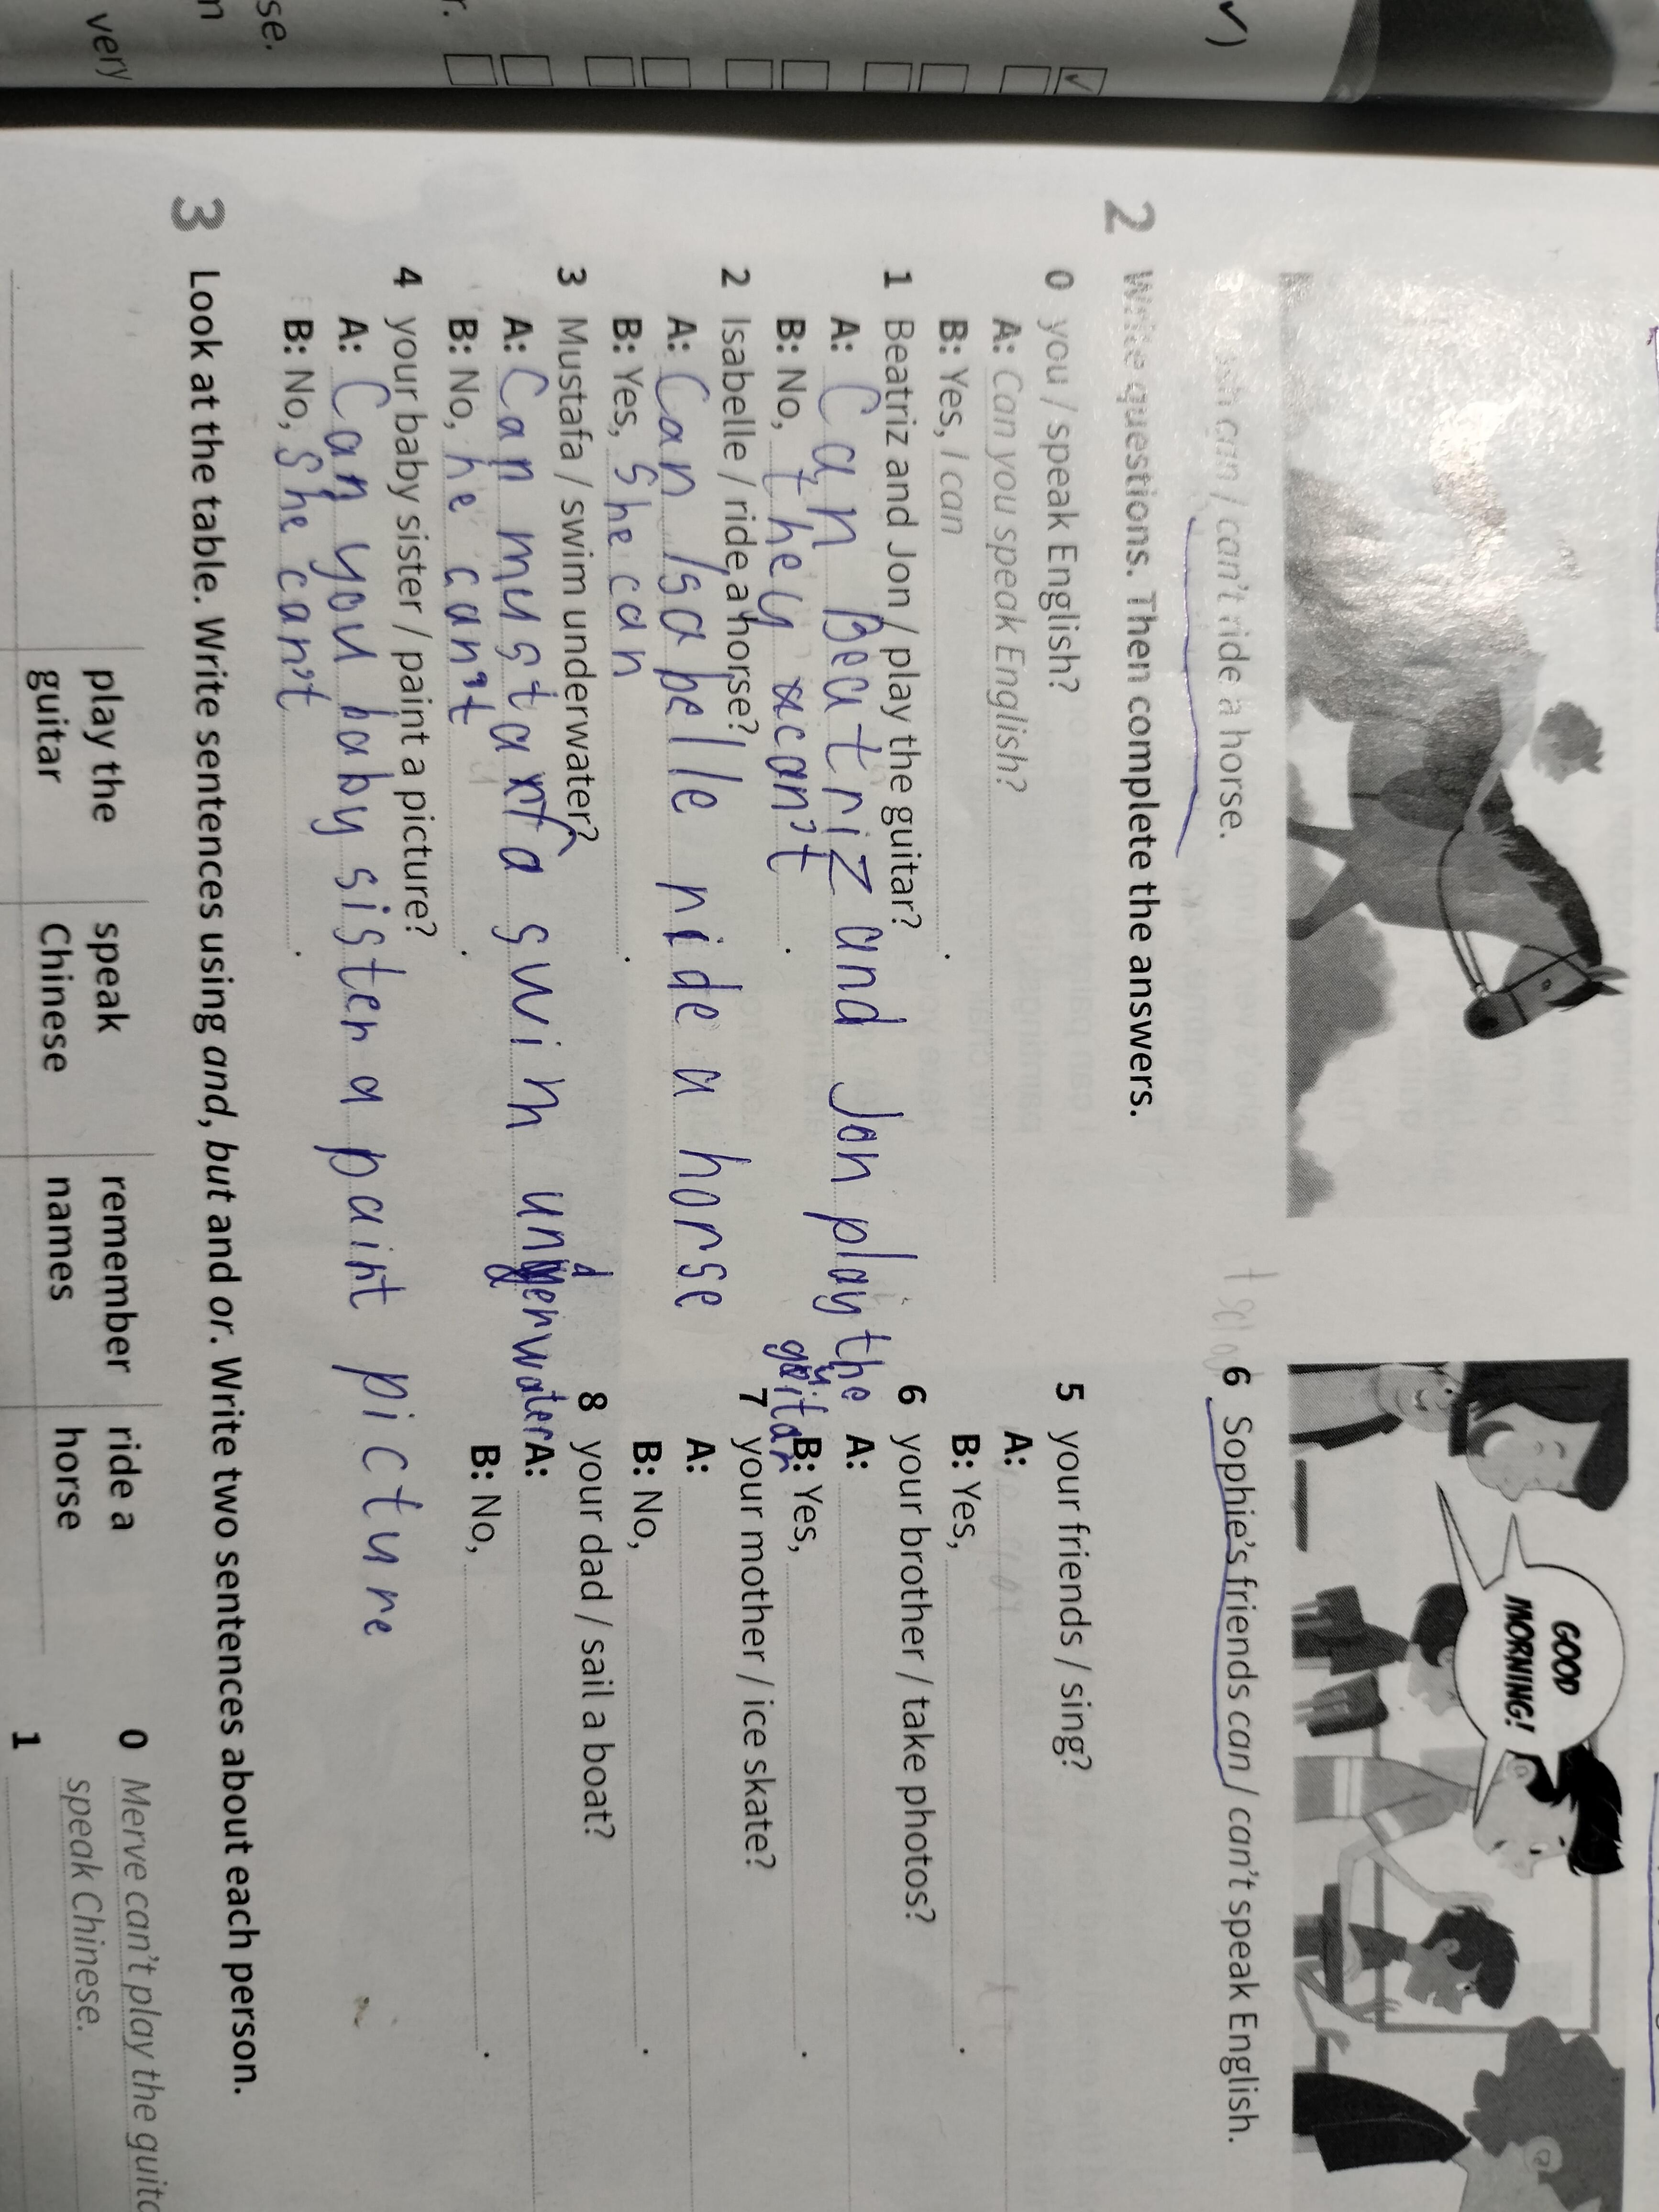 very
se.
r.
✓)
GOOD
MORNING!
can / can't ride a horse.
6 Sophie's friends can / can't speak English.
2 Write questions. Then complete the answers.
0 you / speak English?
A: Can you speak English?
B: Yes, I can.
1 Beatriz and Jon / play the guitar?
A: Can Beatriz and Jon play the guitar
B: No, they can't.
2 Isabelle / ride a horse?
A: Can Isabelle ride a horse
B: Yes, she can.
3 Mustafa / swim underwater?
A: Can mustafa swim underwater
B: No, he can't.
4 your baby sister / paint a picture?
A: Can you baby sister a paint picture
B: No, she can't.
5 your friends / sing?
A:
B: Yes, .
6 your brother / take photos?
A:
B: Yes, .
7 your mother / ice skate?
A:
B: No, .
8 your dad / sail a boat?
A:
B: No, .
3 Look at the table. Write sentences using and, but and or. Write two sentences about each person.
play the guitar
speak Chinese
remember names
ride a horse
0 Merve can't play the
speak Chinese.
1